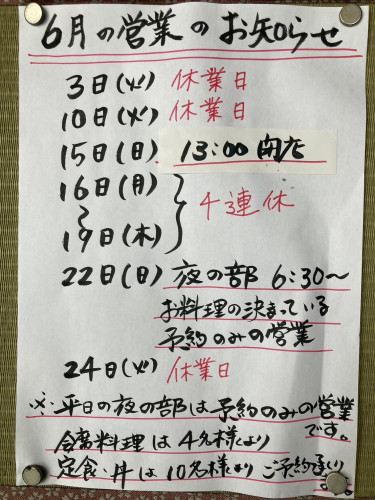 6月の営業のお知らせ
3日(火) 休業日
10日(火) 休業日
15日(日) 13:00 閉店
16日(月)
〜 4連休
19日(木)
22日(日) 夜の部 6:30〜
お料理の決まっている
予約のみの営業
24日(火) 休業日
※平日の夜の部は予約のみの営業
です。
会席料理は4名様より
定食・丼は10名様よりご予約承り